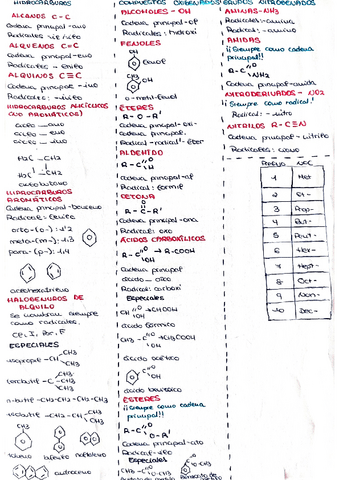 HIDROCARBUROS
ALCANOS C-C
Cadena principal -ano
Radicales -il/ilo
ALQUENOS C=C
Cadena principal -eno
Radicales - enilo
ALQUINOS C≡C
Cadena principal - ino
Radicales: - inilo
HIDROCARBUROS ALICÍCLICOS
(NO AROMÁTICOS)
ciclo - ano
ciclo - eno
ciclo - ino
H2C - CH2
H2C - CH2
ciclobutano
HIDROCARBUROS
AROMÁTICOS
Cadena principal - benceno
Radical: fenilo
orto- (o-): 1,2
meta- (m-): 1,3
para- (p-): 1,4
HALOGENUROS DE
ALQUILO
Se nombran siempre
como radicales.
Cl, I, Br, F
ESPECIALES
isopropil -CH
CH3
CH3
terbutil -C
CH3
CH3
CH3
n-butil -CH2-CH2-CH2-CH3
isobutil -CH2-CH
CH3
CH3
CH3
tolueno
bifenilo
naftaleno
antraceno
COMPUESTOS OXIGENADOS
ALCOHOLES - OH
Cadena principal -ol
Radicales: hidroxi
FENOLES
OH
fenol
OH
CH3
o-metil-fenol
ÉTERES
R - O - R'
Cadena principal -oxi-
Cadena principal.
Radical -radical' - éter
ALDEHIDO
R - C
O
H
Cadena principal -al
Radical: formil
CETONA
O
R - C - R'
Cadena principal -ona
Radical: oxo
ÁCIDOS CARBOXÍLICOS
R - C
O
OH
→ R-COOH
Cadena principal
ácido - oico
Radical: carboxi
Especiales
CH
O
OH
→ CHOOH
ácido fórmico
CH3 - C
O
OH
→ CH3COOH
ácido acético
C
O
OH
ácido benzoico
ÉSTERES
¡¡Siempre como cadena
principal!!
R - C
O
O - R'
Cadena principal -ato
Radical - ilo
Especiales
NITROGENADOS
AMINAS - NH2
Radicales: -amino
AMIDAS
¡¡Siempre como cadena
principal!!
R - C
O
NH2
Cadena principal -amida
NITRODERIVADOS - NO2
¡Siempre como radical!
Radical: - nitro
NITRILOS R - C≡N
Cadena principal - nitrilo
Radicales: ciano
PREFIJO Nº C
1 Met
2 Et -
3 Prop -
4 But -
5 Pent -
6 Hex -
7 Hept -
8 Oct -
9 Non -
10 Dec -